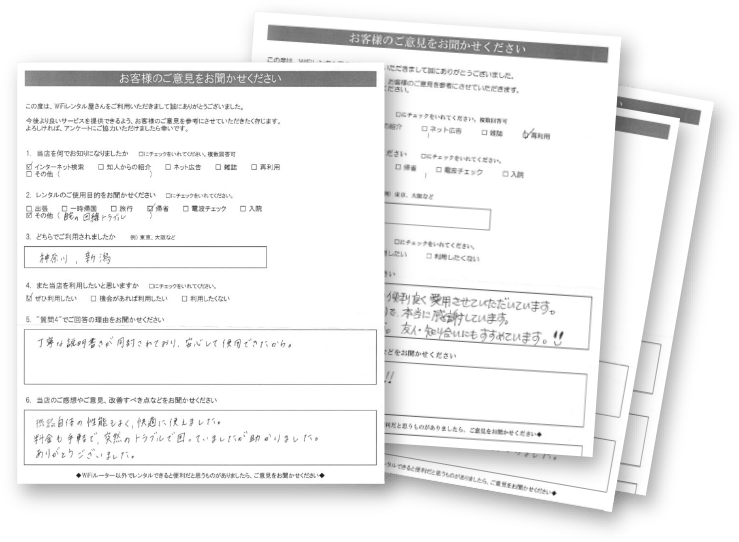 お客様のご意見をお聞かせください
この度は、WiFiレンタル屋さんをご利用いただきまして誠にありがとうございました。
今後より良いサービスを提供できるよう、お客様のご意見を参考にさせていただきたく存じます。
よろしければ、アンケートにご協力いただけましたら幸いです。
1. 当店を何でお知りになりましたか □にチェックをいれてください。複数回答可
☑ インターネット検索 □ 知人からの紹介 □ ネット広告 □ 雑誌 □ 再利用
□ その他 ( )
2. レンタルのご使用目的をお聞かせください □にチェックをいれてください。
□ 出張 □ 一時帰国 □ 旅行 ☑ 帰省 □ 電波チェック □ 入院
☑ その他 ( 自宅の回線トラブル )
3. どちらでご利用されましたか 例）東京、大阪など
神奈川、新潟
4. また当店を利用したいと思いますか □にチェックをいれてください。
☑ ぜひ利用したい □ 機会があれば利用したい □ 利用したくない
5. "質問4"でご回答の理由をお聞かせください
丁寧な説明書きが同封されており、安心して使用できたから。
6. 当店のご感想やご意見、改善すべき点などをお聞かせください
機器自体の性能もよく、快適に使えました。
料金も手軽で、突然のトラブルで困っていましたが助かりました。
ありがとうございました。
◆WiFiルーター以外でレンタルできると便利だと思うものがありましたら、ご意見をお聞かせください◆
お客様のご意見をお聞かせください
この度は、WiFiレンタル
いただきまして誠にありがとうございました。
お客様のご意見を参考にさせていただきます。
□にチェックをいれてください。複数回答可
紹介 □ ネット広告 □ 雑誌 ☑ 再利用
ださい □にチェックをいれてください。
□ 帰省 □ 電波チェック □ 入院
例）東京、大阪など
□にチェックをいれてください。
□ 利用したくない
便利良く愛用させていただいています。
本当に感謝しています。
友人・知り合いにもすすめています。!!
などをお聞かせください
!!
利だと思うものがありましたら、ご意見をお聞かせください◆
ンタルできると便利だと思うものがありましたら、ご意見をお聞かせください◆